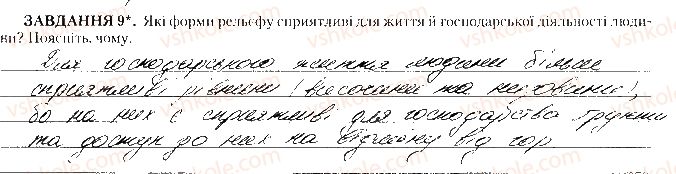 ЗАВДАННЯ 9*. Які форми рельєфу сприятливі для життя й господарської діяльності люди-
ни? Поясніть, чому.
Для господарського життя людини більш
сприятливі рівнини (височини та низовини),
бо на них є сприятливі для господарства ґрунти
та доступ до них на відміну від гір